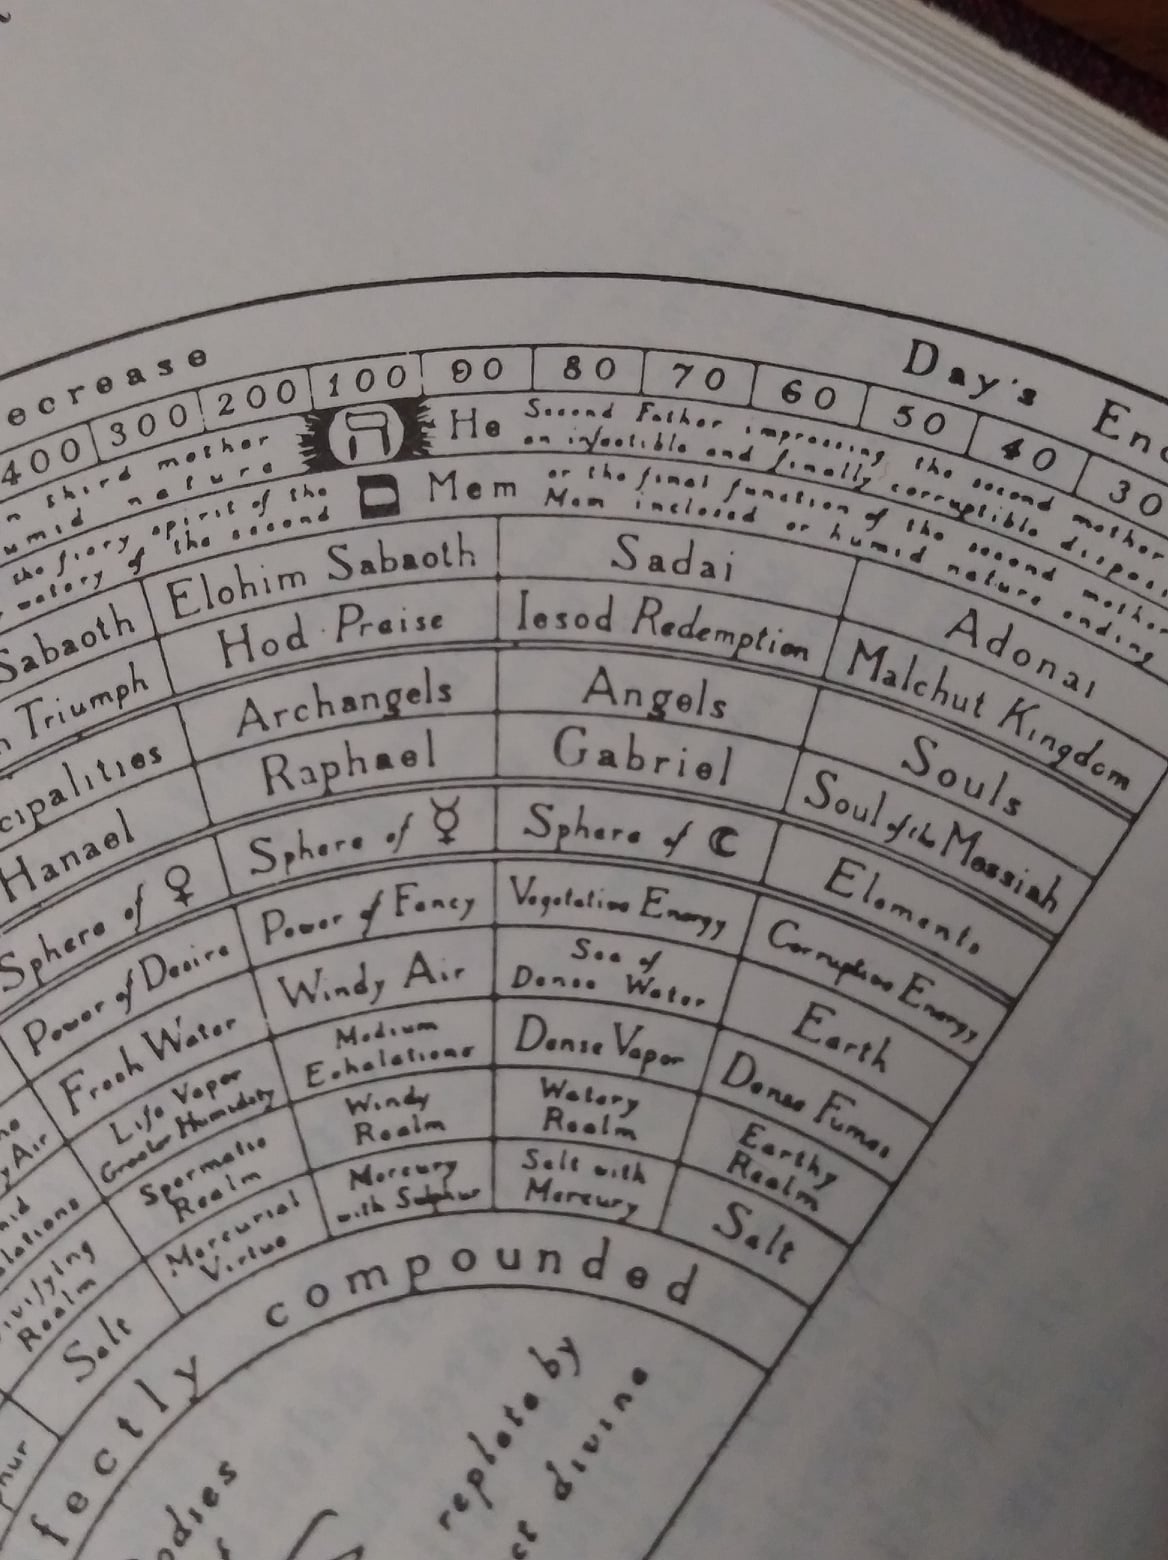 ecrease
Day's En
400 300 200 100 90 80 70 60 50 40 30
third mother
humid nature
ה He
Second Father impressing the second mother
an infectible and finally corruptible
the fiery spirit of the
watery of the second
ם Mem
or the final function of the second
Mem inclosed or humid nature ending
Sabaoth
Elohim Sabaoth
Sadai
Adonai
Triumph
Hod Praise
Iesod Redemption
Malchut Kingdom
cipalities
Archangels
Angels
Souls
Hanael
Raphael
Gabriel
Soul of the Messiah
Sphere of ♀
Sphere of ☿
Sphere of ☾
Elements
Power of Desire
Power of Fancy
Vegetative Energy
Corruptive Energy
Fresh Water
Windy Air
Sea of
Dense Water
Earth
Air
Life Vapor
Greater Humidity
Medium
Exhalations
Dense Vapor
Dense Fumes
lations
Spermatic
Realm
Windy
Realm
Watery
Realm
Earthy
Realm
ivifying
Realm
Mercurial
Virtue
Mercury
with Sulphur
Salt with
Mercury
Salt
Salt
hur
fectly compounded
odies
replete by
divine